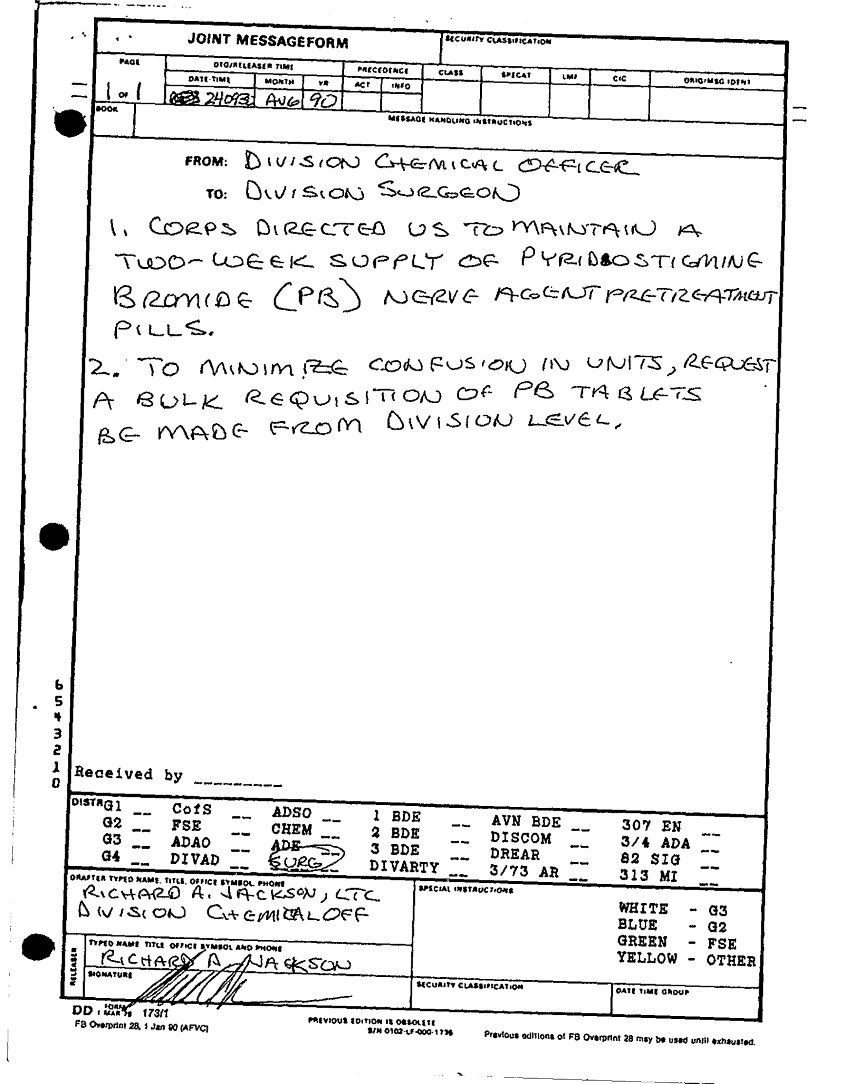 JOINT MESSAGEFORM
SECURITY CLASSIFICATION
PAGE
DTG/RELEASER TIME
PRECEDENCE
CLASS
SPECAT
LMF
CIC
ORIG/MSG IDENT
DATE-TIME
MONTH
YR
ACT
INFO
1 OF 1
24093 AUG 90
BOOK
MESSAGE HANDLING INSTRUCTIONS
FROM: DIVISION CHEMICAL OFFICER
TO: DIVISION SURGEON
1. CORPS DIRECTED US TO MAINTAIN A
TWO-WEEK SUPPLY OF PYRIDOSTIGMINE
BROMIDE (PB) NERVE AGENT PRETREATMENT
PILLS.
2. TO MINIMIZE CONFUSION IN UNITS, REQUEST
A BULK REQUISITION OF PB TABLETS
BE MADE FROM DIVISION LEVEL.
6
5
4
3
2
1
0
Received by _________
DISTR G1 __ CofS __ ADSO __ 1 BDE __ AVN BDE __ 307 EN __
G2 __ FSE __ CHEM __ 2 BDE __ DISCOM __ 3/4 ADA __
G3 __ ADAO __ ADE __ 3 BDE __ DREAR __ 82 SIG __
G4 __ DIVAD __ SURG DIVARTY __ 3/73 AR __ 313 MI __
DRAFTER TYPED NAME, TITLE, OFFICE SYMBOL, PHONE
SPECIAL INSTRUCTIONS
RICHARD A. JACKSON, LTC
DIVISION CHEMICAL OFF
WHITE - G3
BLUE - G2
GREEN - FSE
YELLOW - OTHER
RELEASER
TYPED NAME TITLE OFFICE SYMBOL AND PHONE
RICHARD A. JACKSON
SIGNATURE
SECURITY CLASSIFICATION
DATE TIME GROUP
DD FORM 1 MAR 79 173/1
FB Overprint 28, 1 Jan 90 (AFVC)
PREVIOUS EDITION IS OBSOLETE
S/N 0102-LF-000-1736
Previous editions of FB Overprint 28 may be used until exhausted.